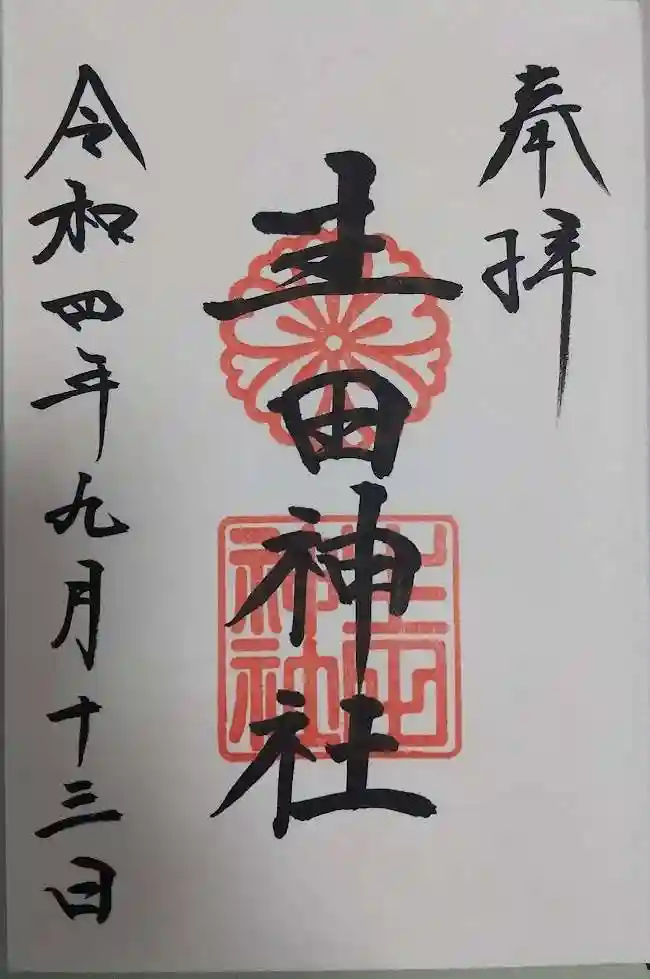 奉拝
生田神社
生田
神社
令和四年九月十三日